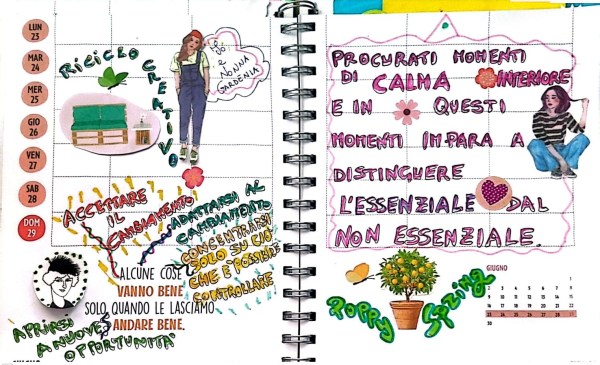 LUN
23
MAR
24
MER
25
GIO
26
VEN
27
SAB
28
DOM
29
RICICLO
CREATIVO
IO
E
NONNA
GARDENIA
ACCETTARE
IL
CAMBIAMENTO
ADATTARSI AL
CAMBIAMENTO
CONCENTRARSI
SOLO SU CIÒ
CHE È POSSIBILE
CONTROLLARE
ALCUNE COSE
VANNO BENE
SOLO QUANDO LE LASCIAMO
ANDARE BENE.
APRIRSI
A NUOVE
OPPORTUNITÀ
PROCURATI MOMENTI
DI CALMA INTERIORE
E IN QUESTI
MOMENTI IMPARA A
DISTINGUERE
L'ESSENZIALE DAL
NON ESSENZIALE.
POPPY Spring
GIUGNO